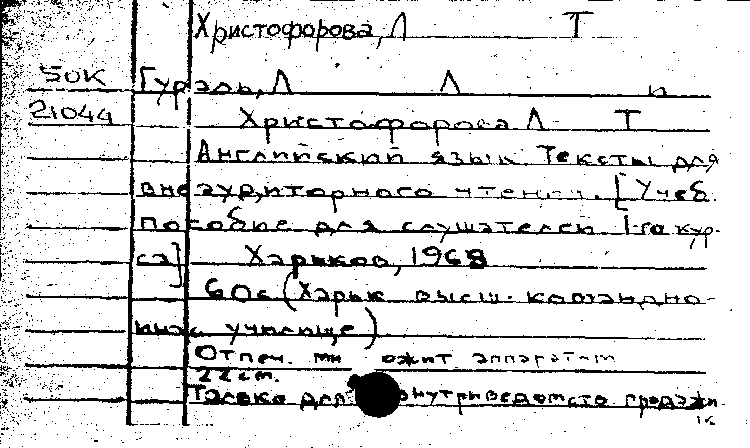 Христофорова, Л Т
50К Гурэль, Л Л
21044 Христофорова Л Т
Английский язык Тексты для
внеаудиторного чтения. [Учеб.
пособие для слушателей 1-го кур-
са] Харьков, 1968
60с (Харьк высш. командно-
училище)
Отпеч. аппаратом
22 см.
Только для внутриведомств продажи